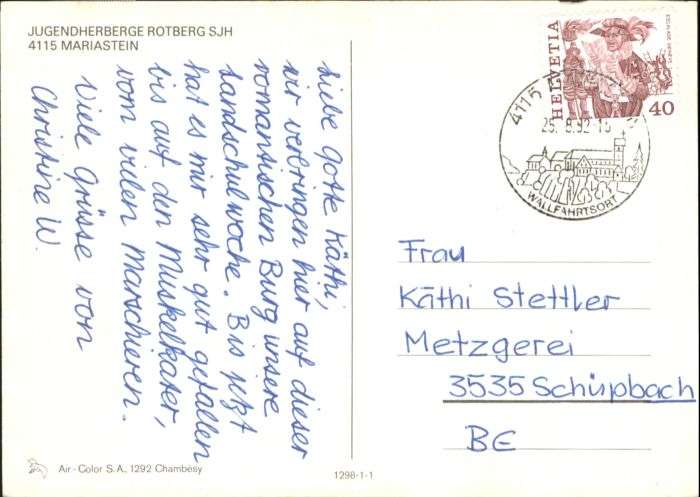 JUGENDHERBERGE ROTBERG SJH
4115 MARIASTEIN
Liebe Gotte Käthi,
wir verbringen hier auf dieser
romantischen Burg unsere
Landschulwoche. Bis jetzt
hat es mir sehr gut gefallen
bis auf den Muskelkater,
vom vielen Marschieren.
Viele Grüsse von
Christine W.
HELVETIA
40
4115
WALLFAHRTSORT
Frau
Käthi Stettler
Metzgerei
3535 Schüpbach
BE
Air-Color S.A., 1292 Chambésy
1298-1-1